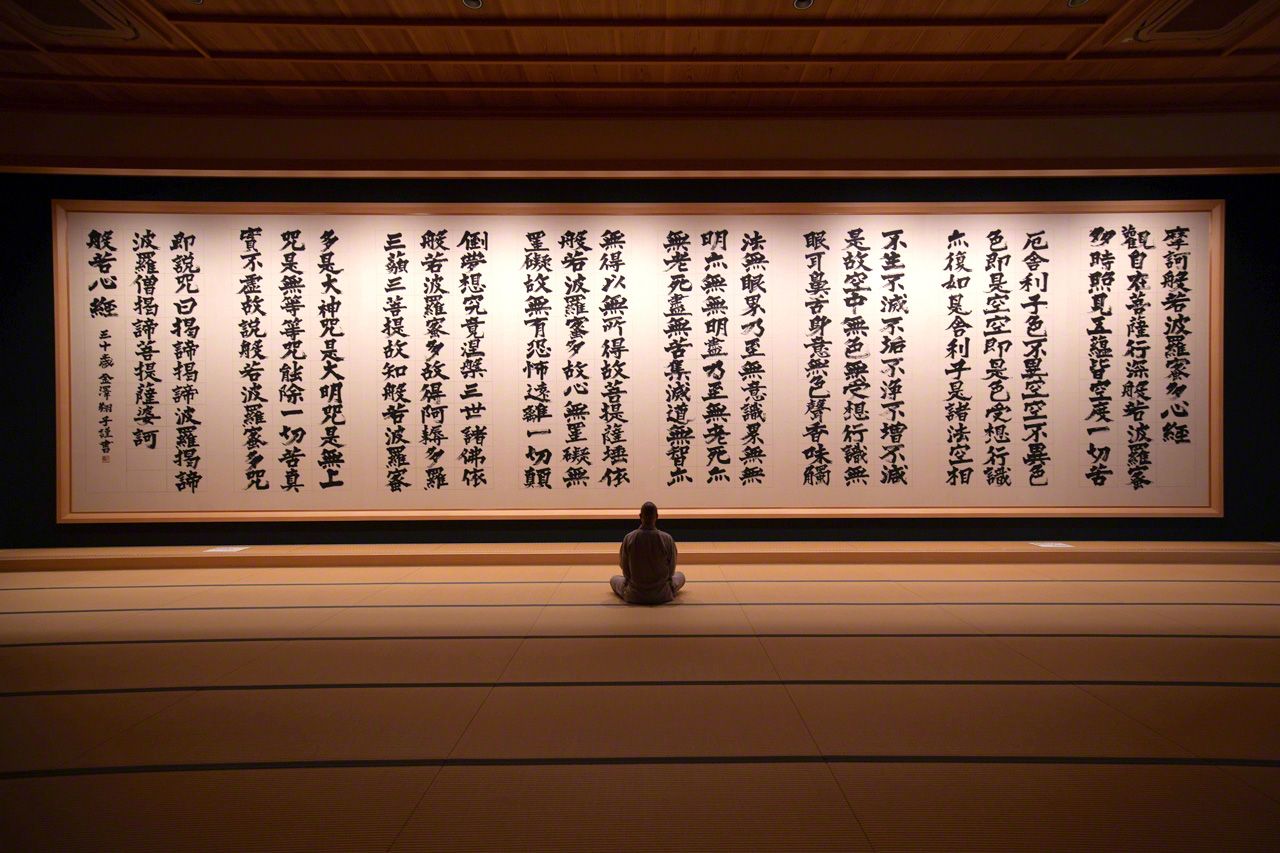 摩訶般若波羅蜜多心経
観自在菩薩行深般若波羅蜜
多時照見五蘊皆空度一切苦
厄舎利子色不異空空不異色
色即是空空即是色受想行識
亦復如是舎利子是諸法空相
不生不滅不垢不浄不増不減
是故空中無色無受想行識無
眼耳鼻舌身意無色聲香味觸
法無眼界乃至無意識界無無
明亦無無明盡乃至無老死亦
無老死盡無苦集滅道無智亦
無得以無所得故菩提薩埵依
般若波羅蜜多故心無罣礙無
罣礙故無有恐怖遠離一切顛
倒夢想究竟涅槃三世諸佛依
般若波羅蜜多故得阿耨多羅
三藐三菩提故知般若波羅蜜
多是大神咒是大明咒是無上
咒是無等等咒能除一切苦真
實不虚故説般若波羅蜜多咒
即説咒曰揭諦揭諦波羅揭諦
波羅僧揭諦菩提薩婆訶
般若心經
三十歳 金澤翔子謹書